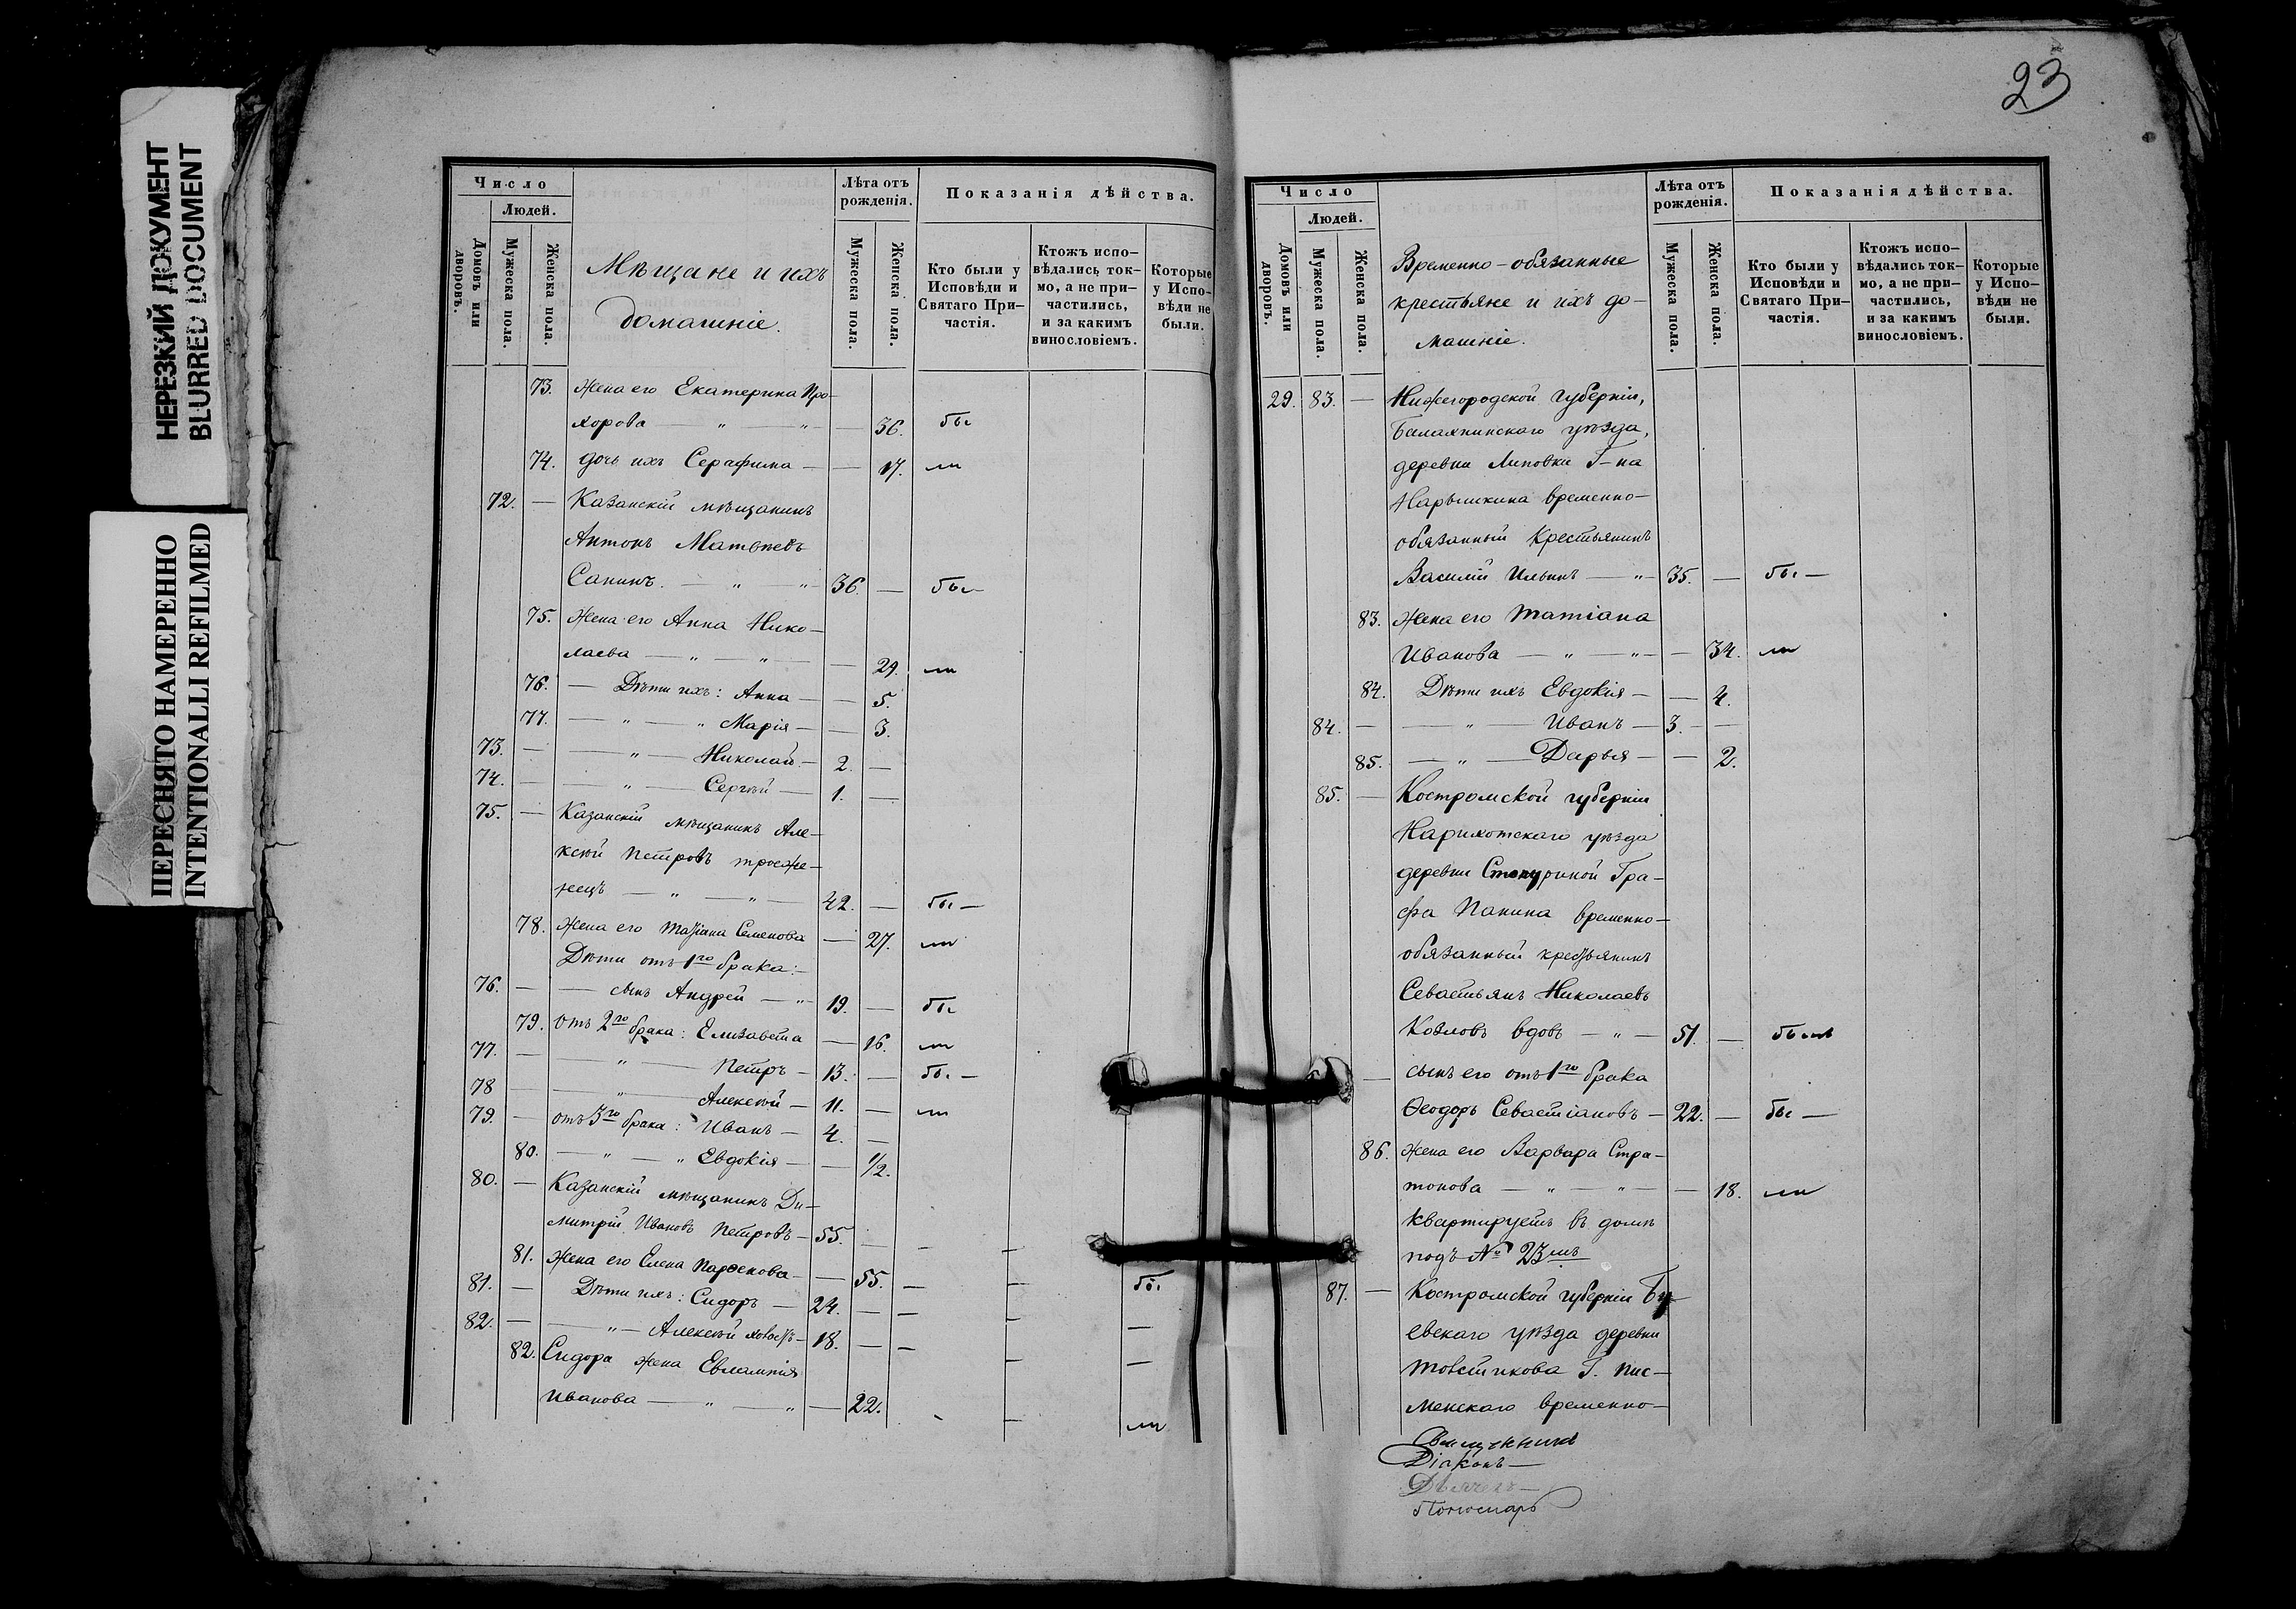 23
НЕРЕЗКИЙ ДОКУМЕНТ
BLURRED DOCUMENT
ПЕРЕСНЯТО НАМЕРЕННО
INTENTIONALLI REFILMED
Число
Людей.
Домовъ или дворовъ.
Мужеска пола.
Женска пола.
Мѣщане и ихъ
домашніе.
Лѣта отъ рожденія.
Мужеска пола.
Женска пола.
Показанія дѣйства.
Кто были у Исповѣди и Святаго Причастія.
Ктожъ исповѣдались токмо, а не причастились, и за какимъ винословіемъ.
Которые у Исповѣди не были.
73. Жена его Екатерина Про-
хорова — „ — „ — — 36. бы
74. дочь ихъ Серафима — — 17. ли
72. — Казанскій мѣщанинъ
Антонъ Матвѣевъ
Санинъ. — „ „ — 36. — бы
75. Жена его Анна Нико-
лаева — „ — „ — — 29. ли
76. — Дѣти ихъ: Анна — — 5.
77. — „ — „ Марія — — 3.
73. — — „ — Николай. — 2. —
74. — — „ — Сергѣй — 1. —
75. — Казанскій мѣщанинъ Але-
ксѣй Петровъ
42. — бы —
78. Жена его Татіана Семенова — 27. ли
Дѣти отъ 1го брака: —
76. — — сынъ Андрей — „ 19. — бы
79. отъ 2го брака: Елизавета — 16. ли
77. — — „ — Петръ — 13. — бы —
78 — — „ — Алексѣй — 11. — ли
79. — отъ 3го брака: Иванъ — 4. —
80. — „ — „ Евдокія — — 1/2.
80. — Казанскій мѣщанинъ Ди-
митрій Ивановъ Петровъ — 55. — — —
81. Жена его Елена — — 55. — — бы
81. — Дѣти ихъ: Сидоръ — 24. — — — —
82. — — „ — Алексѣй — 18. — — — —
82. Сидора жена Евлампія
Иванова — „ — „ — 22. — ли
Число
Людей.
Домовъ или дворовъ.
Мужеска пола.
Женска пола.
Временно-обязанные
крестьяне и ихъ до-
машніе.
Лѣта отъ рожденія.
Мужеска пола.
Женска пола.
Показанія дѣйства.
Кто были у Исповѣди и Святаго Причастія.
Ктожъ исповѣдались токмо, а не причастились, и за какимъ винословіемъ.
Которые у Исповѣди не были.
29. 83. — Нижегородской губерніи,
Балахнинскаго уѣзда,
деревни Липовки Г-на
Нарышкина временно-
обязанный крестьянинъ
Василій Ильинъ — „ — 35. — бы —
83. Жена его Татіана
Иванова — „ — „ — — 34. ли
84. Дѣти ихъ Евдокія — — 4.
84. — — „ — Иванъ — 3. — —
85. — „ — Дарья — — 2.
85. — Костромской губерніи
деревни Гра-
фа Панина временно-
обязанный крестьянинъ
Севастьянъ Николаевъ
Козловъ вдовъ — „ — 51. — были
— сынъ его отъ 1го брака
Ѳеодоръ Севастіановъ — 22. — бы —
86. Жена его Варвара Стра-
тонова — „ — „ — — 18. ли
квартируетъ въ домѣ
подъ № 23мъ
87. — Костромской губерніи Бу-
евскаго уѣзда деревни
Г. Пис-
менскаго временно-
Священникъ
Діаконъ —
Дьячекъ —
Пономарь